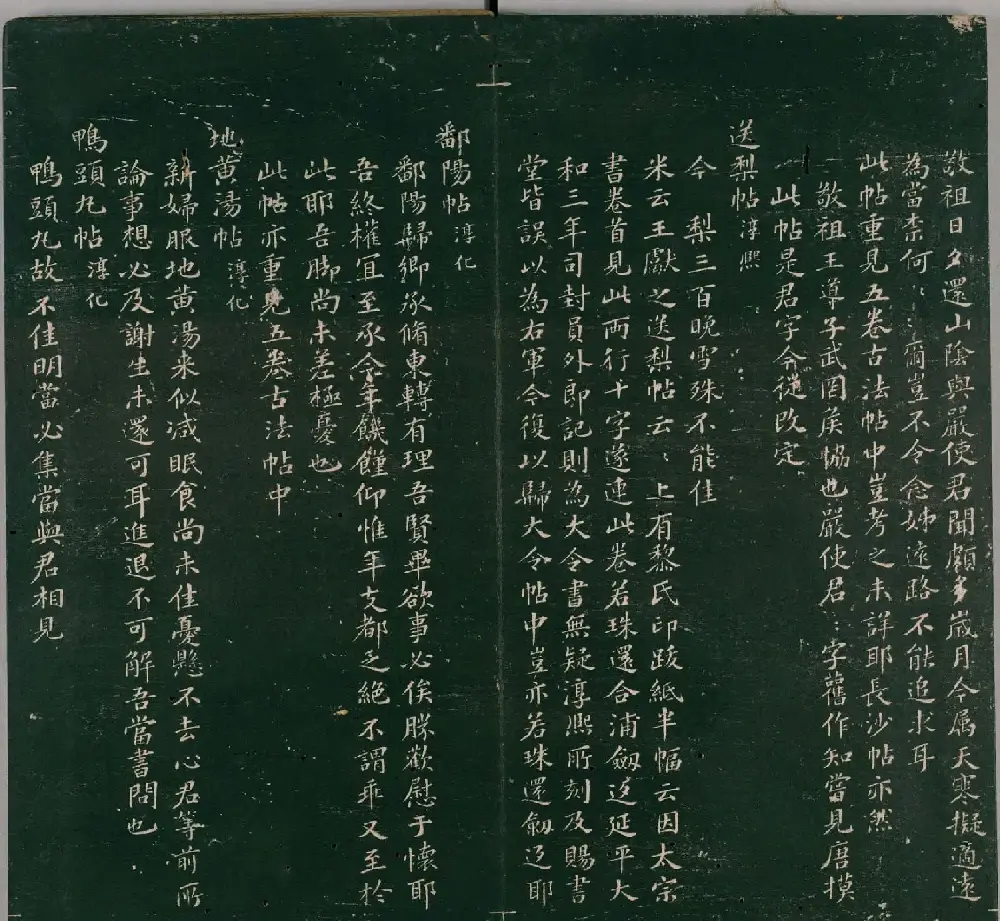 敬祖日夕還山陰與嚴使君聞頗多歲月今屬天寒擬適遠
為當柰何〻爾豈不令念姊遠路不能追求耳
此帖重見五卷古法帖中豈考之未詳耶長沙帖亦然
敬祖王導子武岡侯協也嚴使君〻字舊作知嘗見唐摸
此帖是君字令從改定
送梨帖淳熙
今 梨三百晚雪殊不能佳
米云王獻之送梨帖云〻上有黎氏印跋紙半幅云因太宗
書卷首見此兩行十字遂連此卷若珠還合浦劒返延平大
和三年司封員外郎記則為大令書無疑淳熙所刻及賜書
堂皆誤以為右軍令復以歸大令帖中豈亦若珠還劒返耶
鄱陽帖淳化
鄱陽歸鄉承脩東轉有理吾賢畢欲事必俟勝歡慰于懷耶
吾終權宜至承今年饑饉仰惟年支都乏絕不謂乖又至於
此耶吾脚尚未差極憂也
此帖亦重見五卷古法帖中
地黃湯帖淳化
新婦服地黃湯来似減眠食尚未佳憂懸不去心君等前所
論事想必及謝生未還可耳進退不可解吾當書問也
鴨頭丸帖淳化
鴨頭丸故不佳明當必集當與君相見